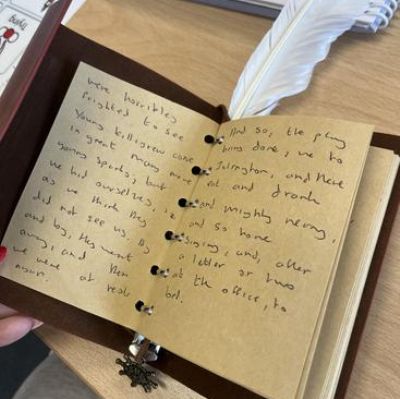 were horribley
frighted to see
Young killigrew come
in great many more
young sparks, but
we hid ourselves, so
as we think they
did not see us. By
and by, they went
away, and then
we were at rest
again.
And so, the play
bing done, we to
Islington, and there
eat and drank
and mighty merry,
and so home
singing, and, after
a letter or two
at the office, to
bed.